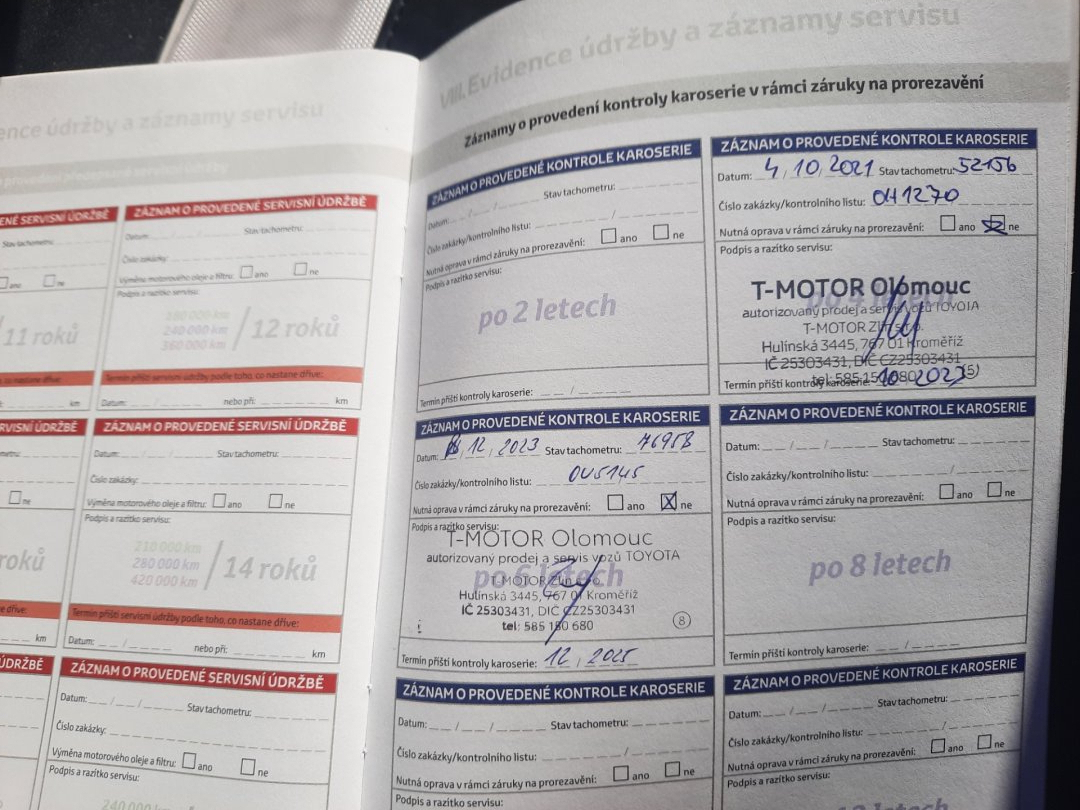 ence údržby a záznamy servisu
ENÉ SERVISNÍ ÚDRŽBĚ
Stav tachometru:
ne
11 roků
km
ZÁZNAM O PROVEDENÉ SERVISNÍ ÚDRŽBĚ
Datum: Stav tachometru:
Číslo zakázky:
Výměna motorového oleje a filtru: ano ne
Podpis a razítko servisu:
180 000 km
240 000 km
360 000 km
/ 12 roků
Termín příští servisní údržby podle toho, co nastane dříve:
Datum: nebo při: km
RVISNÍ ÚDRŽBĚ
ne
roků
e dříve:
km
ZÁZNAM O PROVEDENÉ SERVISNÍ ÚDRŽBĚ
Datum: Stav tachometru:
Číslo zakázky:
Výměna motorového oleje a filtru: ano ne
Podpis a razítko servisu:
210 000 km
280 000 km
420 000 km
/ 14 roků
Termín příští servisní údržby podle toho, co nastane dříve:
Datum: nebo při: km
ÚDRŽBĚ
ZÁZNAM O PROVEDENÉ SERVISNÍ ÚDRŽBĚ
Datum: Stav tachometru:
Číslo zakázky:
Výměna motorového oleje a filtru: ano ne
Podpis a razítko servisu:
240 000 km
VIII. Evidence údržby a záznamy servisu
Záznamy o provedení kontroly karoserie v rámci záruky na prorezavění
ZÁZNAM O PROVEDENÉ KONTROLE KAROSERIE
Datum: Stav tachometru:
Číslo zakázky/kontrolního listu:
Nutná oprava v rámci záruky na prorezavění: ano ne
Podpis a razítko servisu:
po 2 letech
Termín příští kontroly karoserie:
ZÁZNAM O PROVEDENÉ KONTROLE KAROSERIE
Datum: 4, 10, 2021 Stav tachometru: 52156
Číslo zakázky/kontrolního listu: 041270
Nutná oprava v rámci záruky na prorezavění: ano ne
Podpis a razítko servisu:
po 4 letech
T-MOTOR Olomouc
autorizovaný prodej a servis vozů TOYOTA
T-MOTOR Zlín s.r.o.
Hulínská 3445, 767 01 Kroměříž
IČ 25303431, DIČ CZ25303431
tel: 585 150 680
Termín příští kontroly karoserie: 10 2023
ZÁZNAM O PROVEDENÉ KONTROLE KAROSERIE
Datum: 12, 2023 Stav tachometru: 76958
Číslo zakázky/kontrolního listu: 0U5145
Nutná oprava v rámci záruky na prorezavění: ano ne
Podpis a razítko servisu:
po 6 letech
T-MOTOR Olomouc
autorizovaný prodej a servis vozů TOYOTA
T-MOTOR Zlín s.r.o.
Hulínská 3445, 767 01 Kroměříž
IČ 25303431, DIČ CZ25303431
tel: 585 150 680
8
Termín příští kontroly karoserie: 12, 2025
ZÁZNAM O PROVEDENÉ KONTROLE KAROSERIE
Datum: Stav tachometru:
Číslo zakázky/kontrolního listu:
Nutná oprava v rámci záruky na prorezavění: ano ne
Podpis a razítko servisu:
po 8 letech
Termín příští kontroly karoserie:
ZÁZNAM O PROVEDENÉ KONTROLE KAROSERIE
Datum: Stav tachometru:
Číslo zakázky/kontrolního listu:
Nutná oprava v rámci záruky na prorezavění: ano ne
Podpis a razítko servisu:
ZÁZNAM O PROVEDENÉ KONTROLE KAROSERIE
Datum: Stav tachometru:
Číslo zakázky/kontrolního listu:
Nutná oprava v rámci záruky na prorezavění: ano ne
Podpis a razítko servisu: